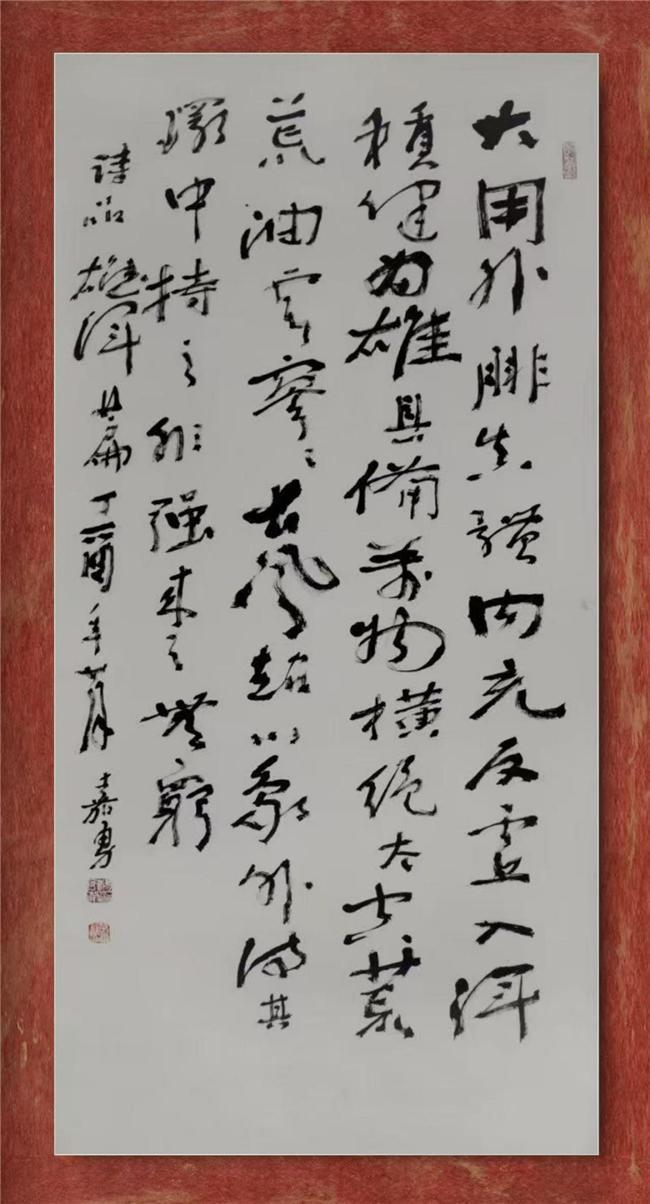 大用外腓真體内充反虚入渾
積健為雄具備萬物橫絕太空荒
荒油雲寥〻古風超以象外得其
環中持之匪强來之無窮
詩品雄渾篇丁酉年月嘉勇